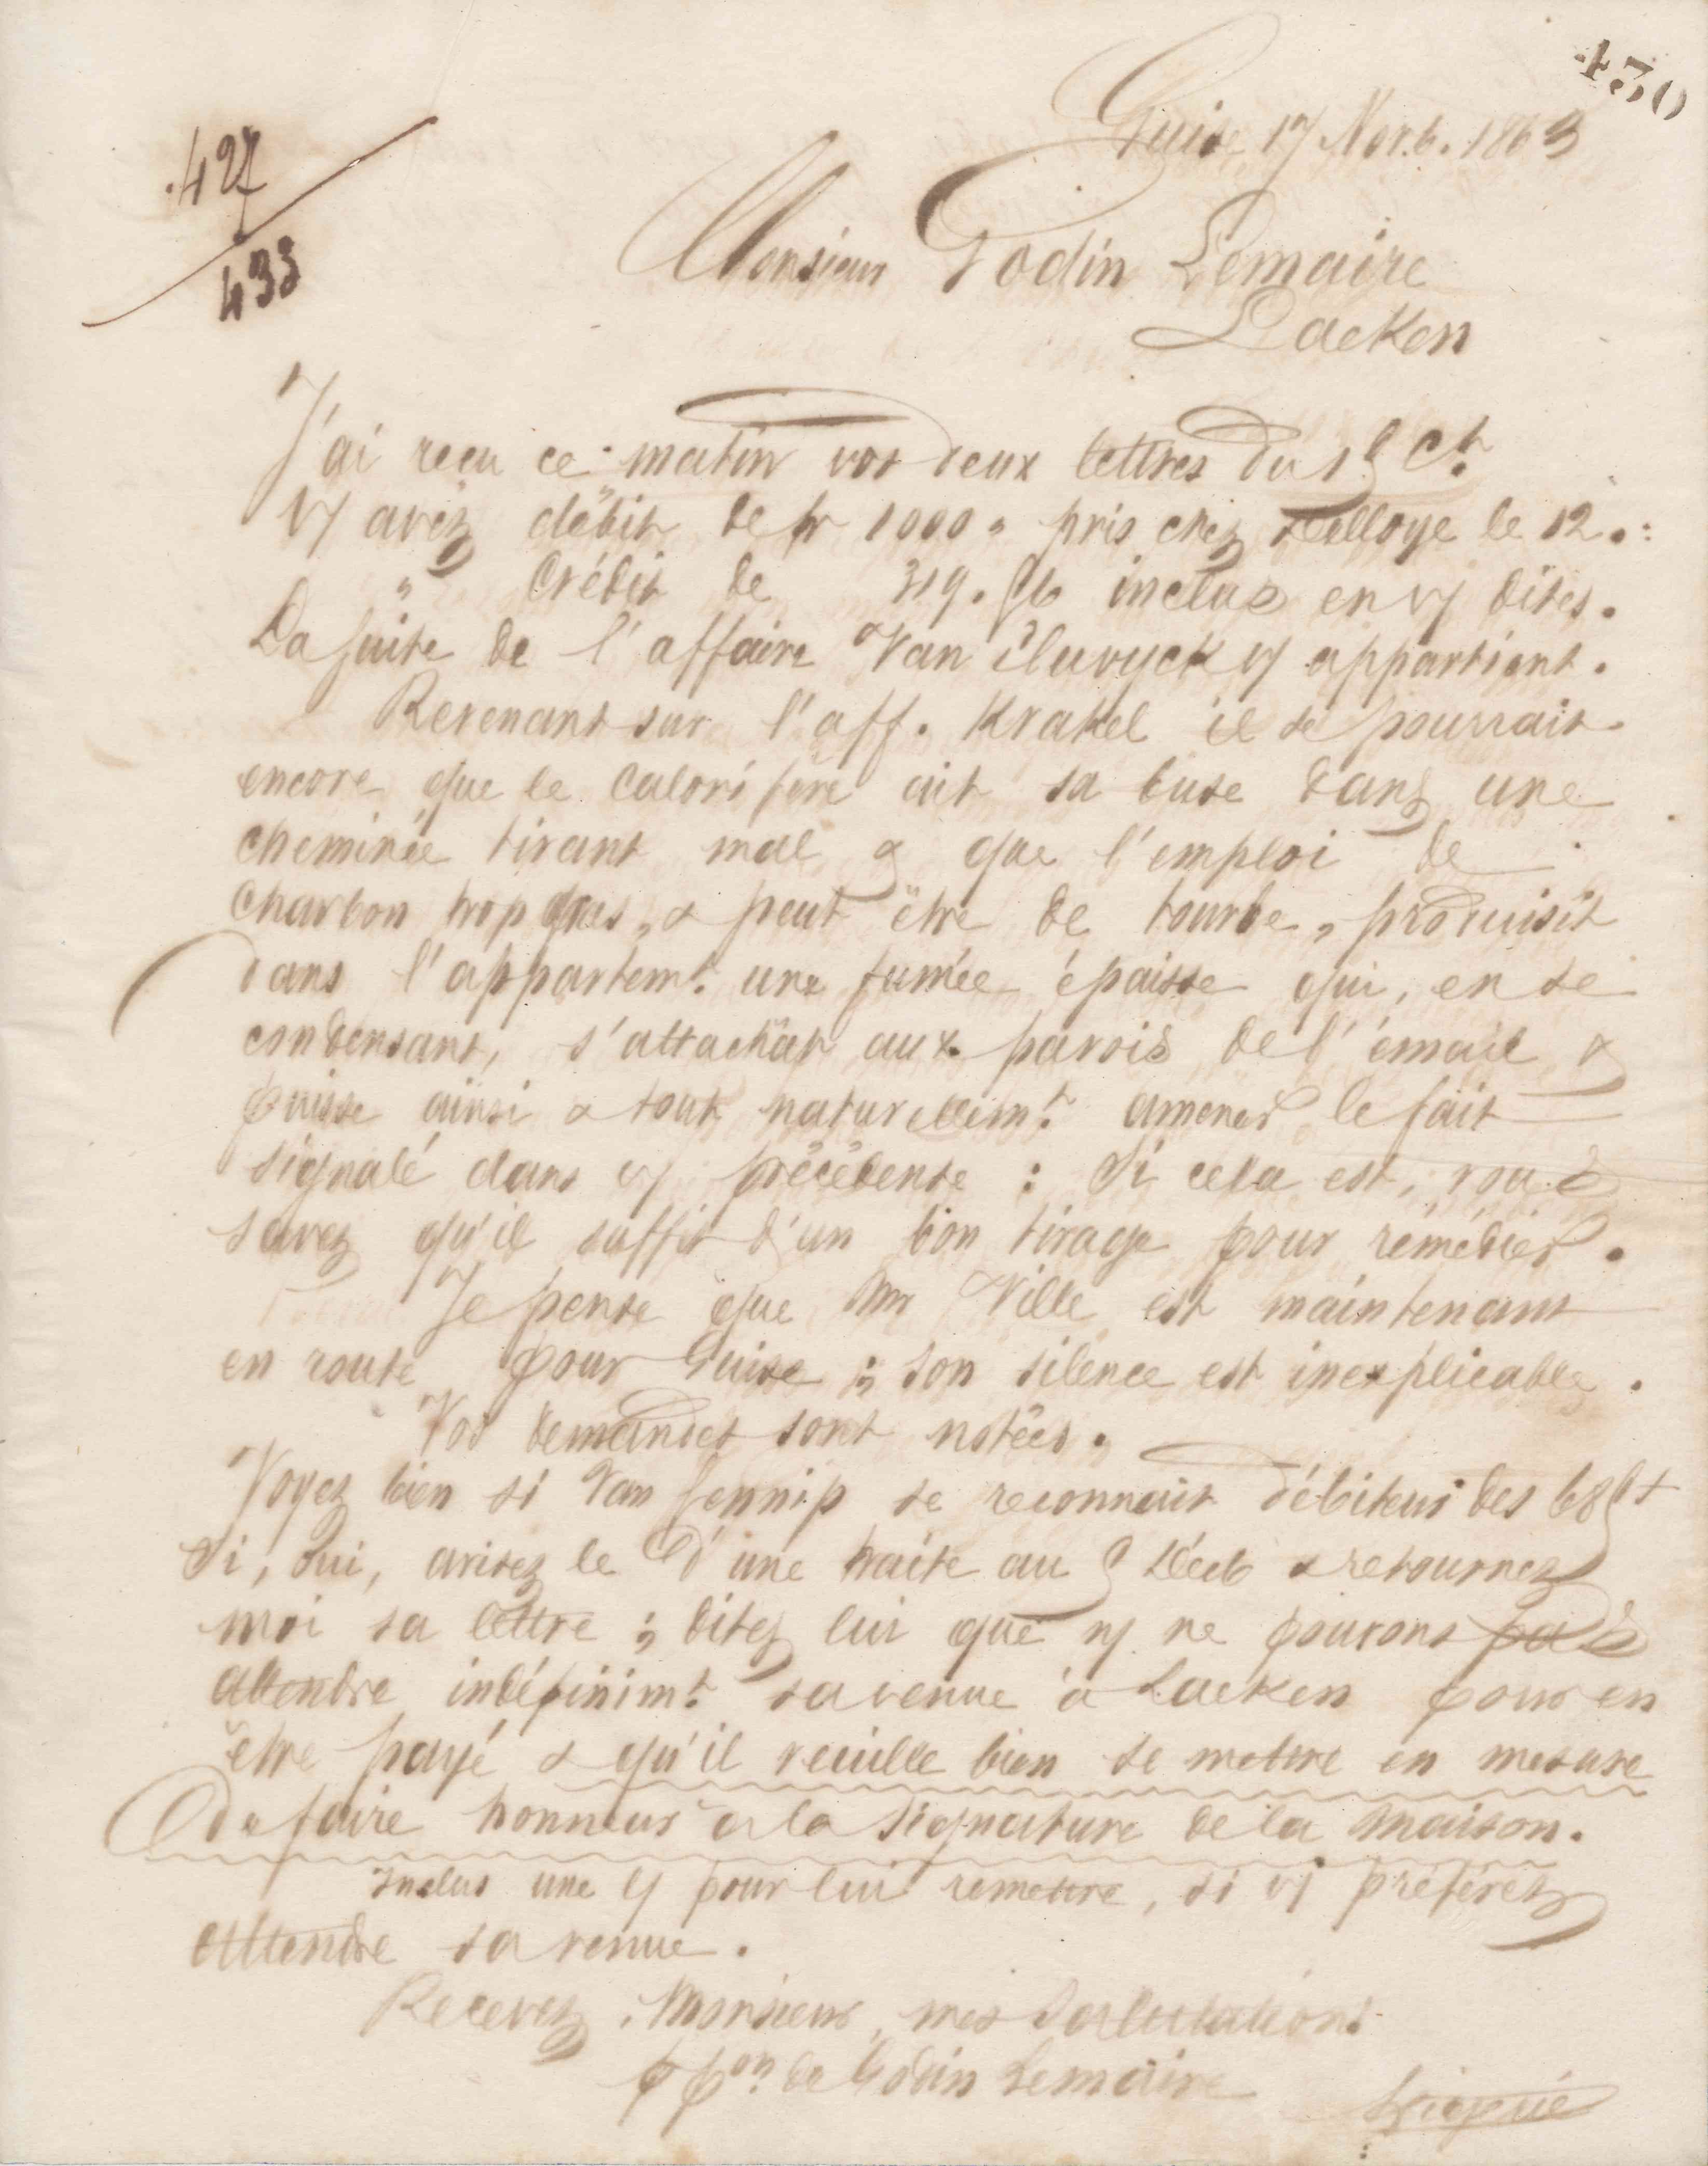 430
427
433
Guise 17 Novb. 1863
Monsieur Godin Lemaire
Laeken
J'ai reçu ce matin vos deux lettres du 15 Ct.
V/ avez débit de fr 1000 " pris chez Delloye le 12.
" Crédit de 319.56 inclus en v/ dites.
La suite de l'affaire Van Cluvyck v/ appartient.
Revenant sur l'aff. Krakel il se pourrait
encore que le Calorifère ait sa buse dans une
cheminée tirant mal & que l'emploi de
Charbon trop gras, & peut être de tourbe, produisît
dans l'appartemt. une fumée épaisse qui, en se
condensant, s'attachât aux parois de l'émail &
puisse ainsi & tout naturellemt. amener le fait
signalé dans v/ précédente : Si cela est, vous
savez qu'il suffit d'un bon tirage pour remédier.
Je pense que Mr Ville est maintenant
en route pour Guise ; son silence est inexplicable.
Vos demandes sont notées.
Voyez bien si Van Gennip se reconnait débiteur des 68
Si, Oui, avisez le d'une traite au 5 Décb & retournez
moi sa lettre ; dites lui que n/ ne pouvons pas
attendre indéfinimt. sa venue à Laeken pour en
être payé & qu'il veuille bien se mettre en mesure
de faire honneur à la signature de la maison.
Inclus une l/ pour lui remettre, si v/ préférez
attendre sa venue.
Recevez, Monsieur, mes Salutations
ppon. de Godin Lemaire